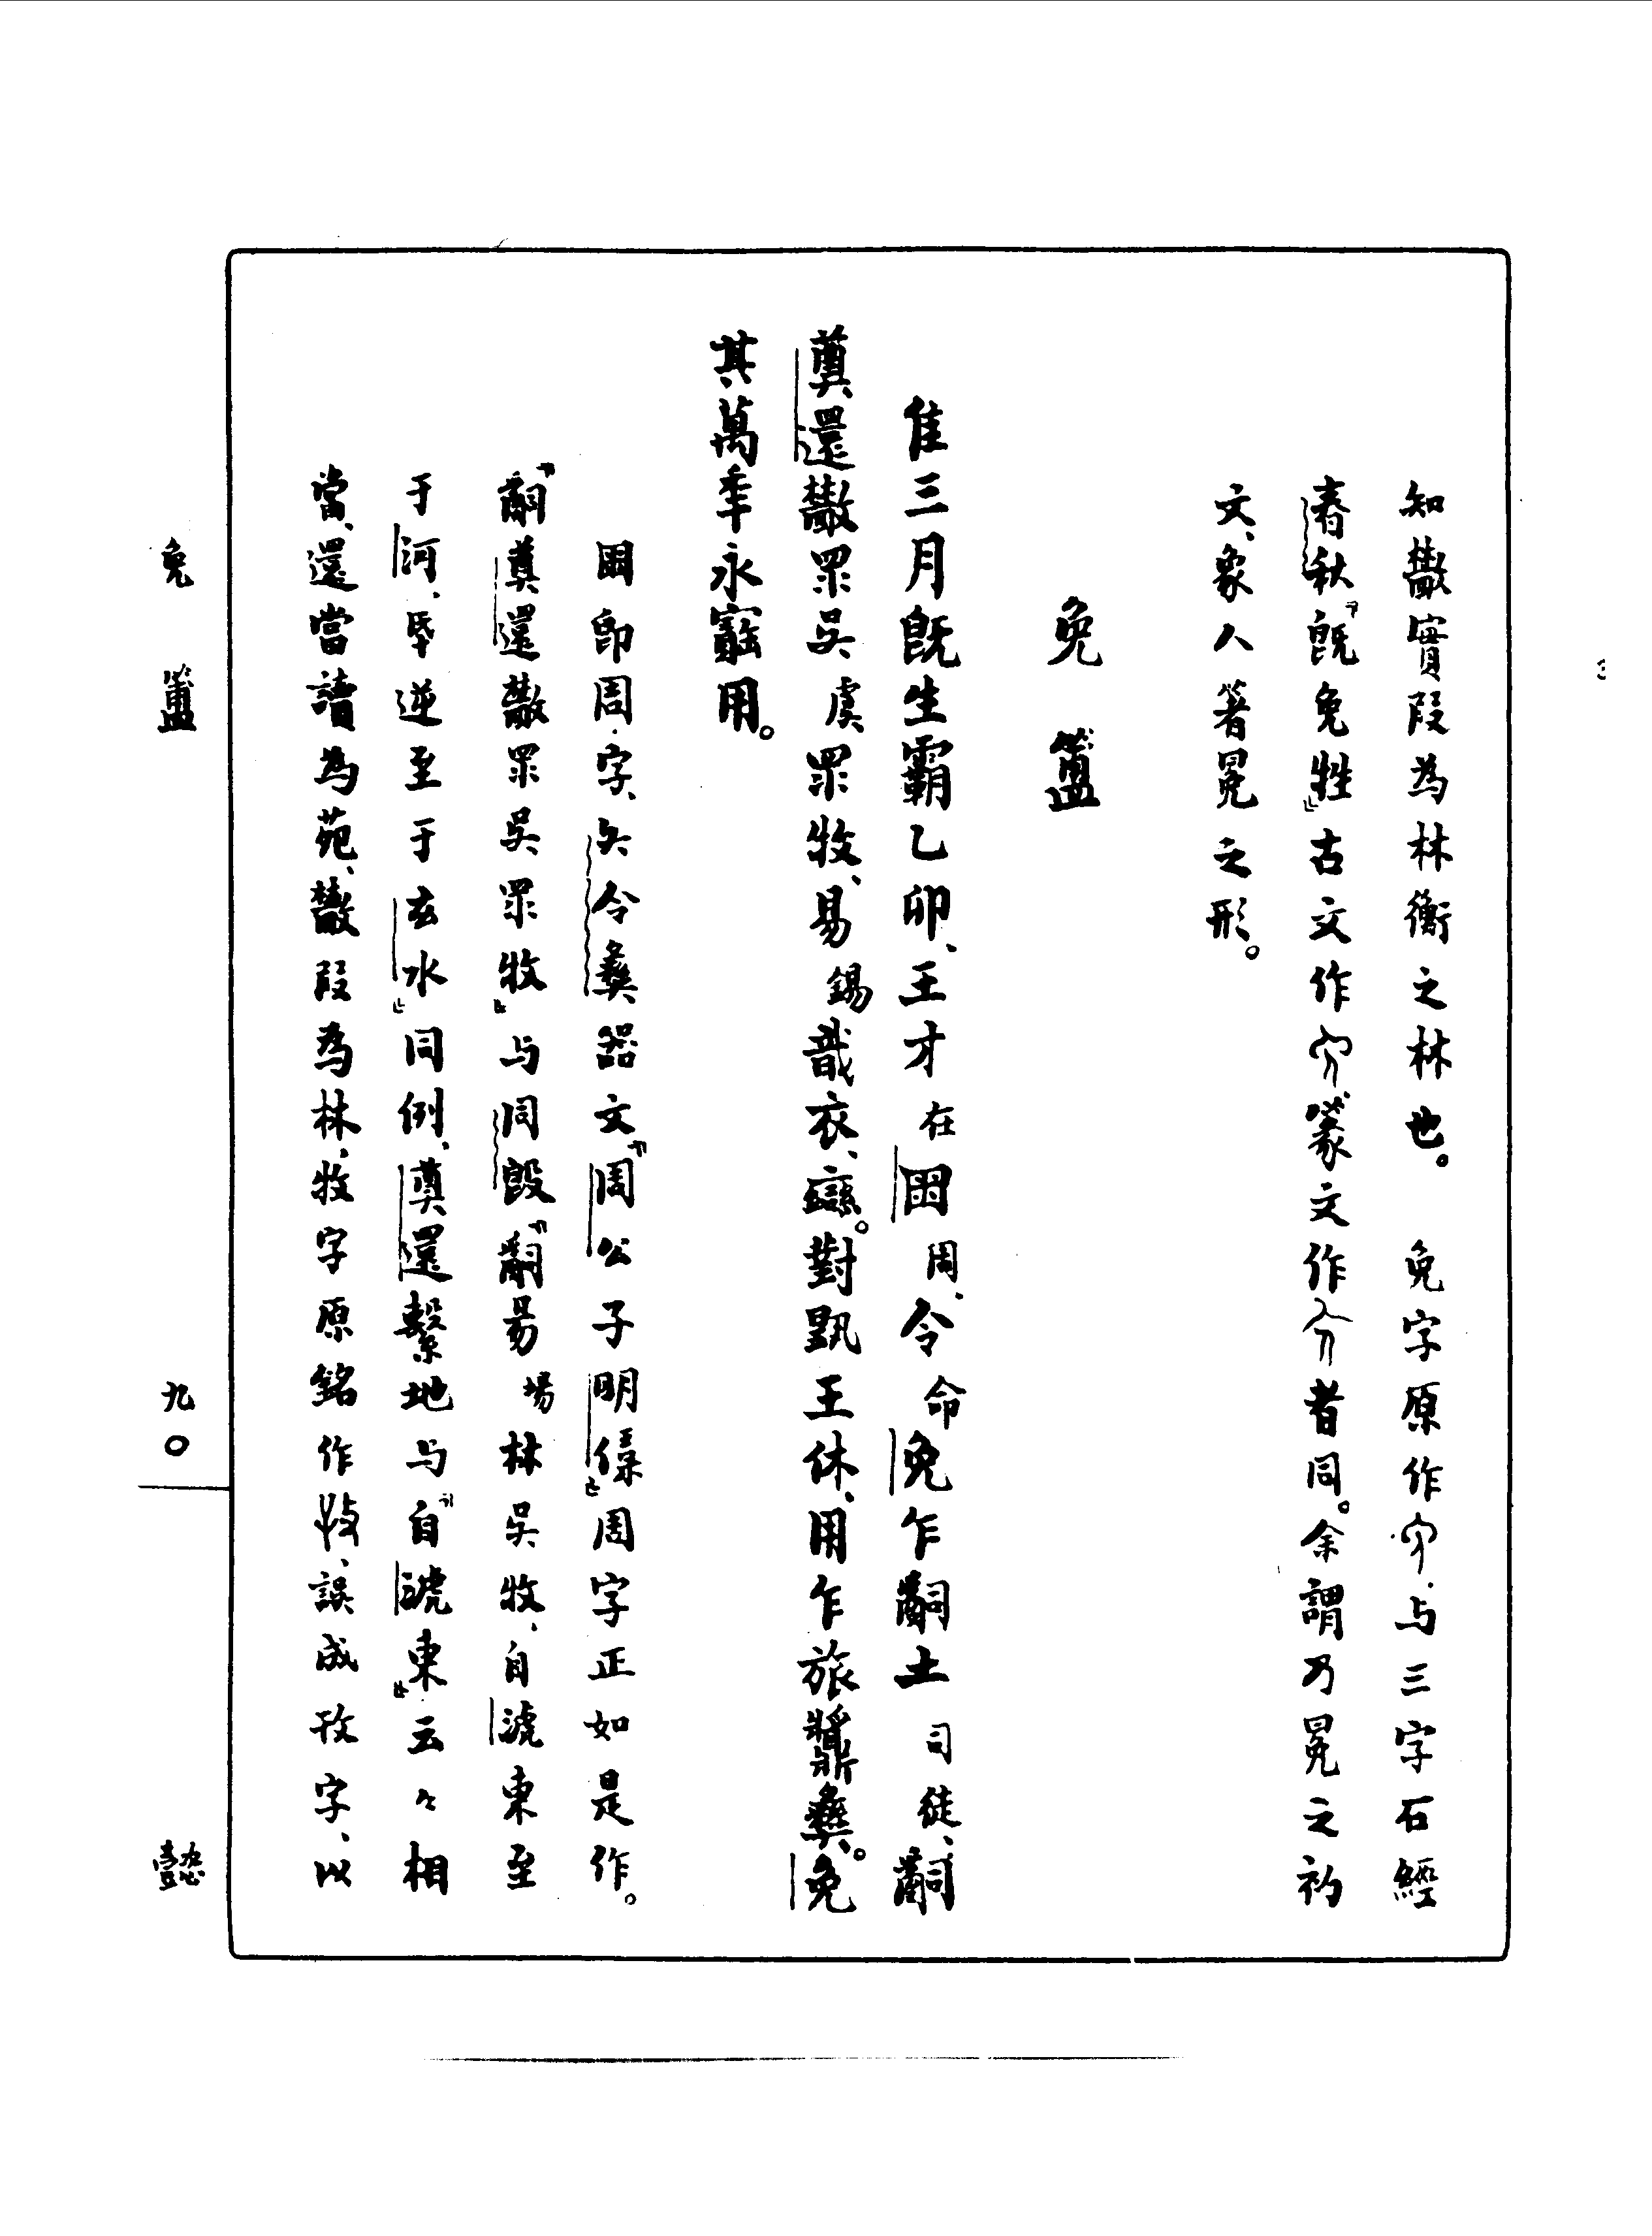 知𣙙實叚為林衡之林也。 免字原作、与三字石經
春秋『既免牲』古文作篆文作者同。余謂乃冕之初
文、象人箸冕之形。
免簠
隹三月既生霸乙卯、王才在周、令命免乍𤔲土司徒、𤔲
奠還𣙙眔吳虞眔牧、易錫戠衣、䜌。對𩁹王休、用乍旅彝。免
其萬年永寶用。
即周字、夨令彝器文『周公子明保』周字正如是作。
『𤔲奠還𣙙眔吳眔牧』与同𣪘『𤔲昜場林吳牧、自淲東至
于河、氒逆至于玄水』同例、奠還繫地与『自淲東』云々相
當、還當讀為苑、𣙙叚為林、牧字原銘作、誤成孜字、以
免簠
九〇